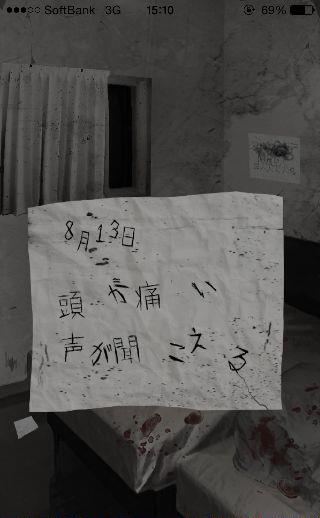 SoftBank 3G 15:10 69%
8月13日
頭が痛い
声が聞こえる